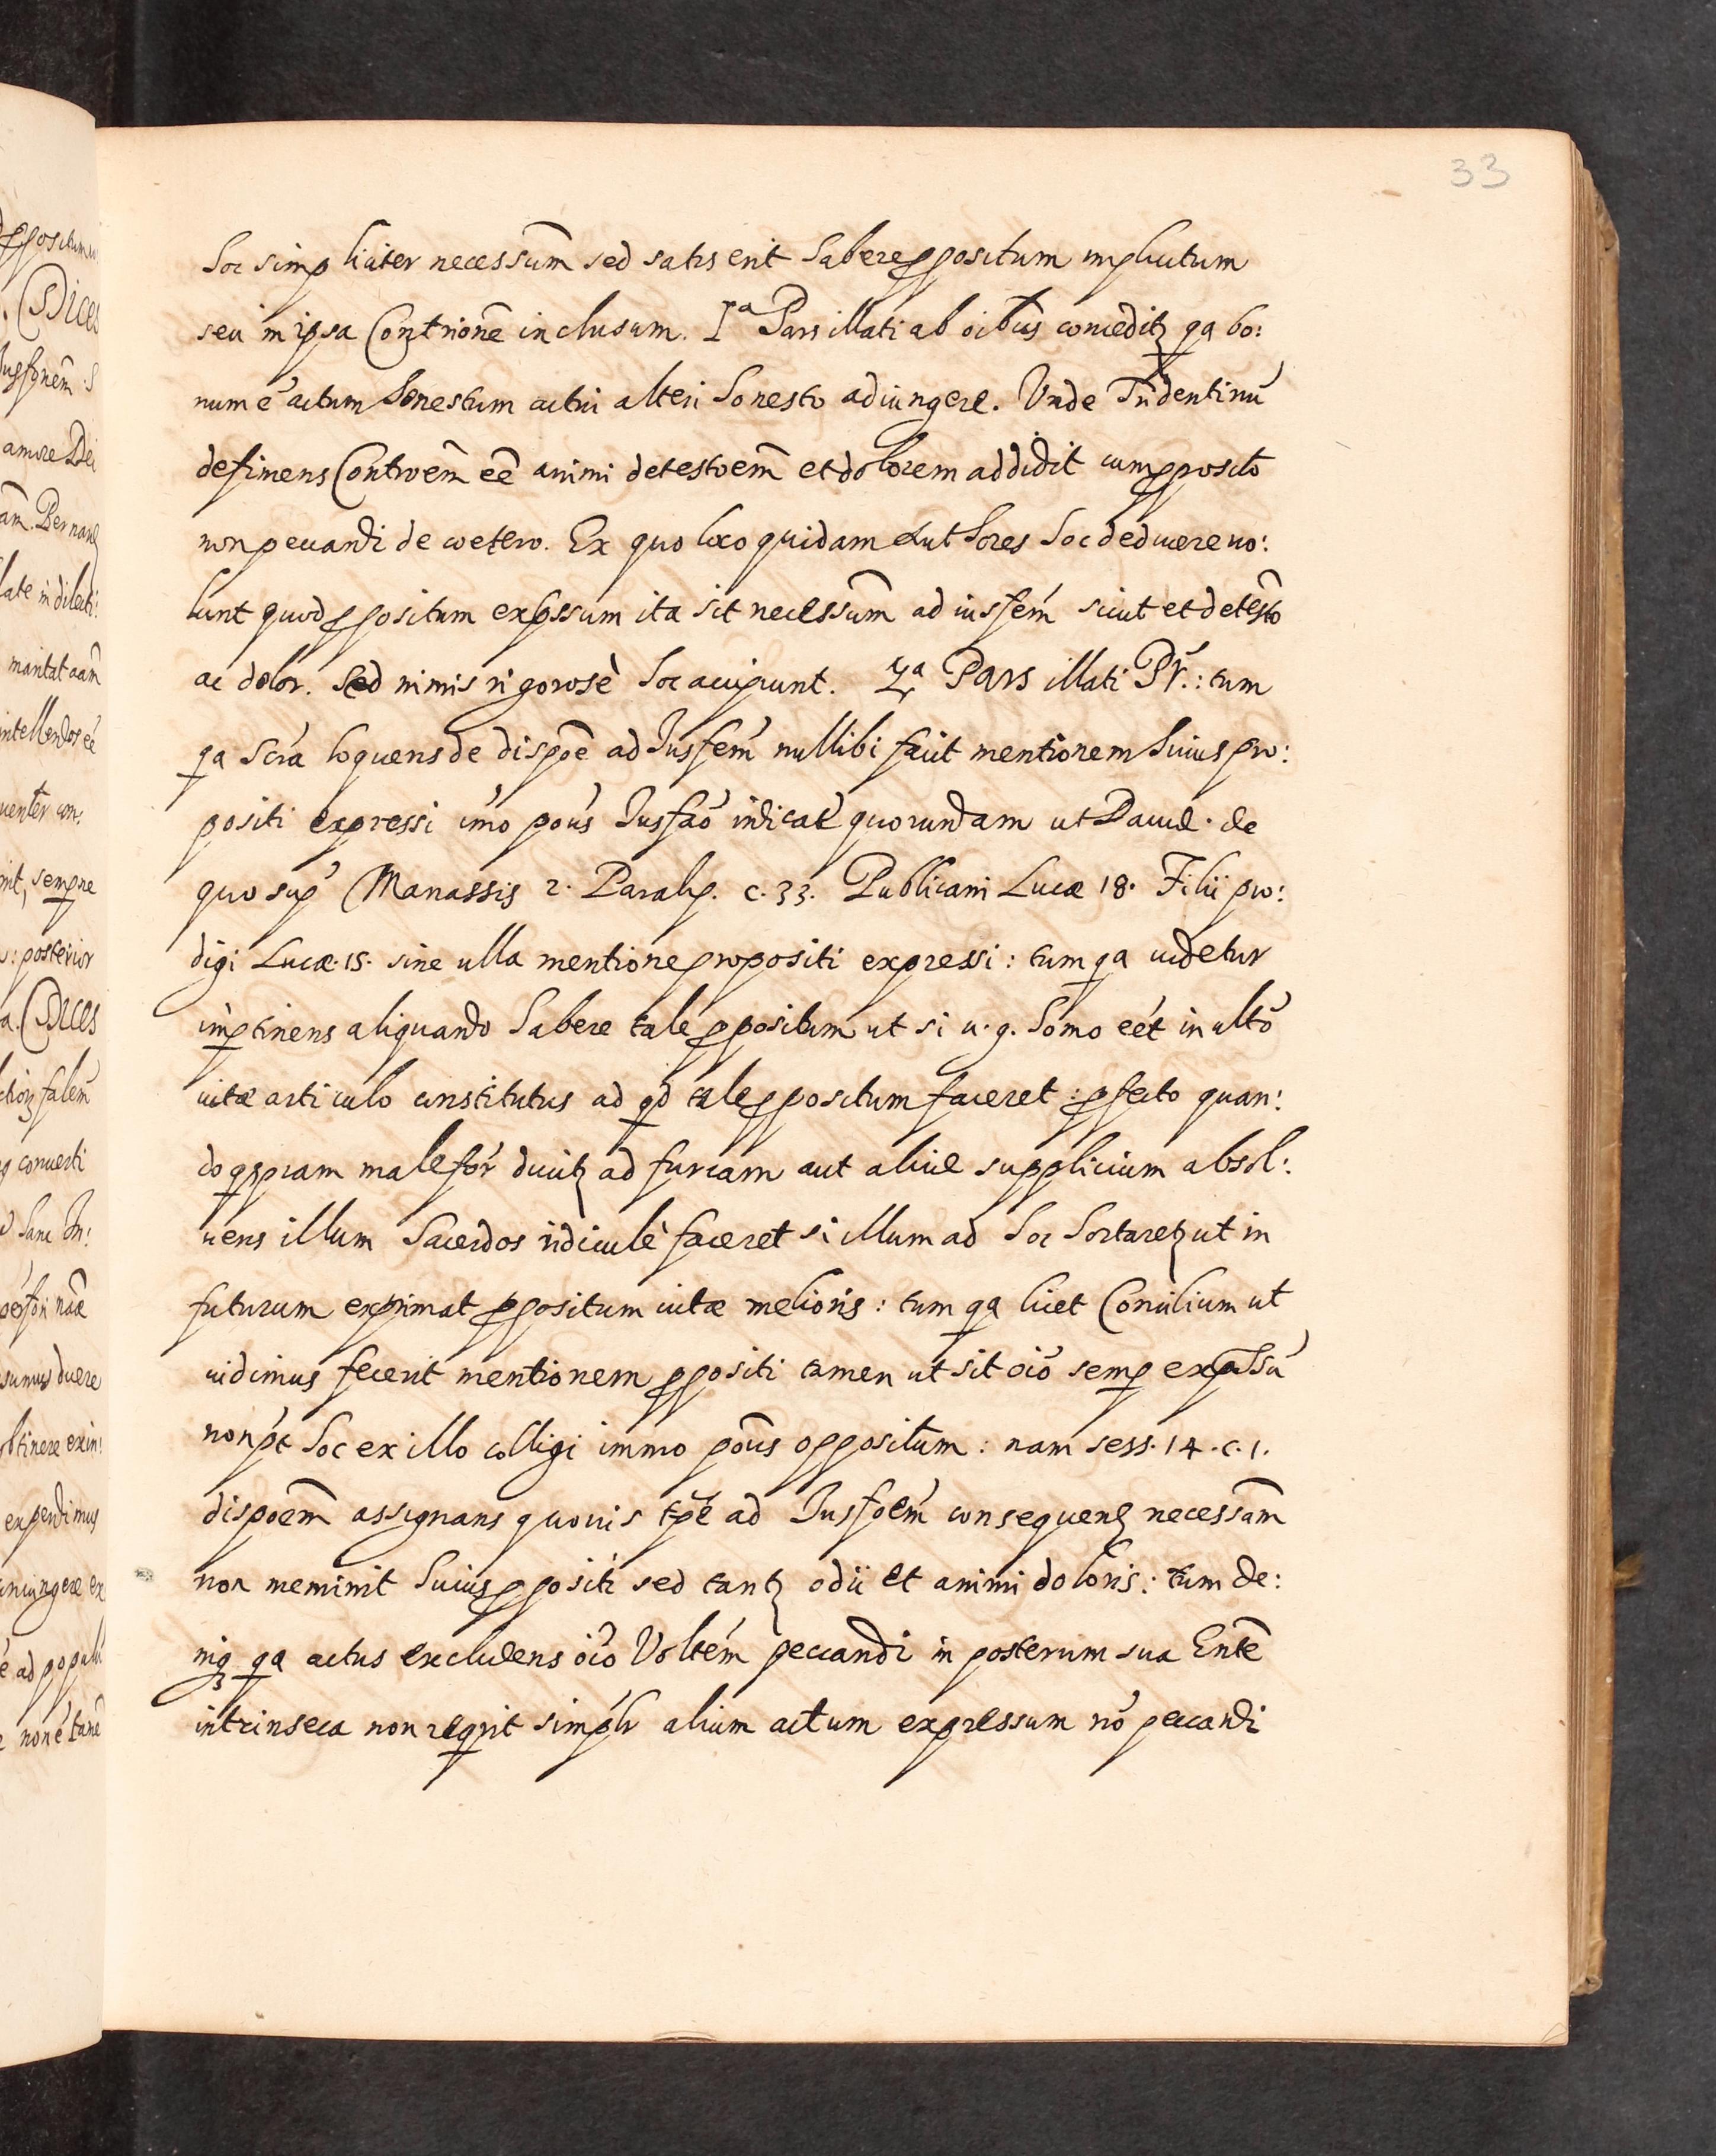 33
hoc simpliciter necessum̃ sed satis erit habere ppositum implicitum
seu in ipsa Contrionẽ inclusum. Iª Pars illati ab oib̃us conceditȝ qa bo:
num é actum honestum actui alteri honesto adiungere. Vnde Tridentinú
definiens Contrioem̃ eẽ animi detestoem̃ et dolorem addidit cum pposito
non peccandi de coetero. Ex quo loco quidam Authores hoc deducere uo:
lunt quod ppositum expssum ita sit necessum̃ ad iusfem̃ sicut et detesto
ac dolor. Sed nimis rigorosè hoc accipiunt. 2ª Pars illati Pr̃.: tum
qa Scra loquens de dispoẽ ad Jusfem̃ nullibi facit mentionem huius pro:
positi expressi imo poús Jusfaó indicat quorundam ut Dauid. de
quo sup Manassis 2. Paralip. c. 33. Publicani Lucæ 18. Filii pro:
digi Lucæ 15. sine ulla mentione propositi expressi: tum qa uidetur
imptinens aliquando habere tale ppositum ut si u. g. homo eét in ultó
uitæ articulo constitutus ad qd tale ppositum faceret: pfecto quan:
do qspiam malefor ducitȝ ad furcam aut aliud supplicium absol:
uens illum Sacerdos ridiculè faceret si illum ad hoc hortaretȝ ut in
futurum exprimat ppositum uitæ melioris: tum qa licet Concilium ut
uidimus fecerit mentionem ppositi tamen ut sit oió semp expssú
non pt hoc ex illo colligi immo poús oppositum: nam sess. 14. c. 1.
dispoem̃ assignans quouis tpẽ ad Jusfoem̃ consequend necessam̃
non meminit huius ppositi sed tantȝ odii et animi doloris: tum de:
niqȝ qa actus excludens oió Voltém peccandi in posterum sua Entẽ
intrinseca non reqrit simplr alium actum expressum nó peccandi